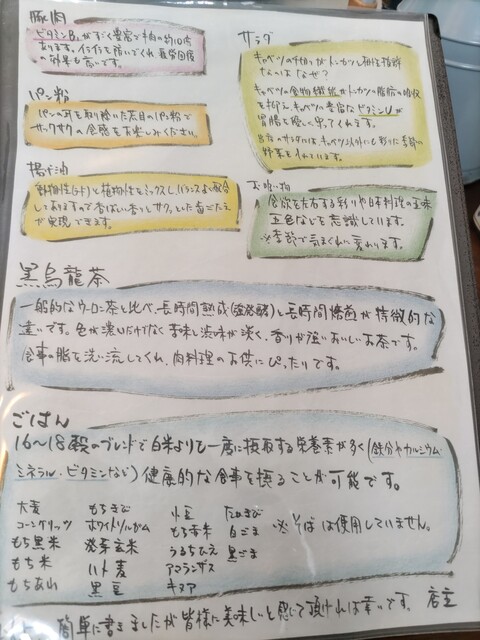 豚肉
ビタミンB₁がすごく豊富で牛肉の約10倍
あります。イライラを防いでくれ、疲労回復
の効果も高いです。
パン粉
パンの耳を取り除いた志目のパン粉で
サックサクの食感をお楽しみください。
揚げ油
動物性(ラード)と植物性をミックスし、バランスよく配合
しておりますので香ばしい香りとサクッとした歯ごたえ
が実現できます。
サラダ
キャベツの千切りがトンカツと相性抜群
なのはなぜ?
キャベツの食物繊維がトンカツの脂肪の吸収
を抑え、キャベツに豊富なビタミンUが
胃腸を優しく守ってくれます。
当店のサラダには、キャベツ以外にも彩りた季節の
野菜を入れています。
お吸い物
食欲を左右する彩りや日本料理の五味
五色などを意識しています。
※季節で気まぐれに変わります。
黒烏龍茶
一般的なウーロン茶と比べ、長時間熟成(強発酵)と長時間焙煎が特徴的な
違いです。色が濃いだけでなく苦味と渋味が淡く、香りが強いおいしいお茶です。
食事の脂を洗い流してくれ、肉料理のお供にぴったりです。
ごはん
16〜18穀のブレンドで白米よりも一度に摂取する栄養素が多く(鉄分やカルシウム
ミネラル・ビタミンなど)健康的な食事を摂ることが可能です。
大麦 もちきび 小豆 たかきび
コーングリッツ ホワイトソルガム もち赤米 白ごま ※そばは使用していません。
もち黒米 発芽玄米 うるちひえ 黒ごま
もち米 ハト麦 アマランサス
もちあわ 黒豆 キヌア
簡単に書きましたが皆様に美味しいと感じて頂ければ幸いです。 店主